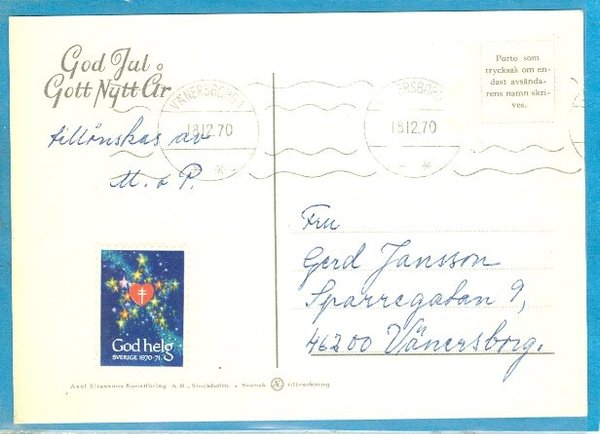 God Jul o
Gott Nytt År
tillönskas av
M. o P.
VÄNERSBORG 1
18.12.70
VÄNERSBORG 1
18.12.70
Porto som
trycksak om en-
dast avsända-
rens namn skri-
ves.
Fru
Gerd Jansson
Sparregatan 9,
46200 Vänersborg.
God helg
SVERIGE 1970-71
Axel Eliassons Konstförlag A.B., Stockholm • Svensk AE tillverkning